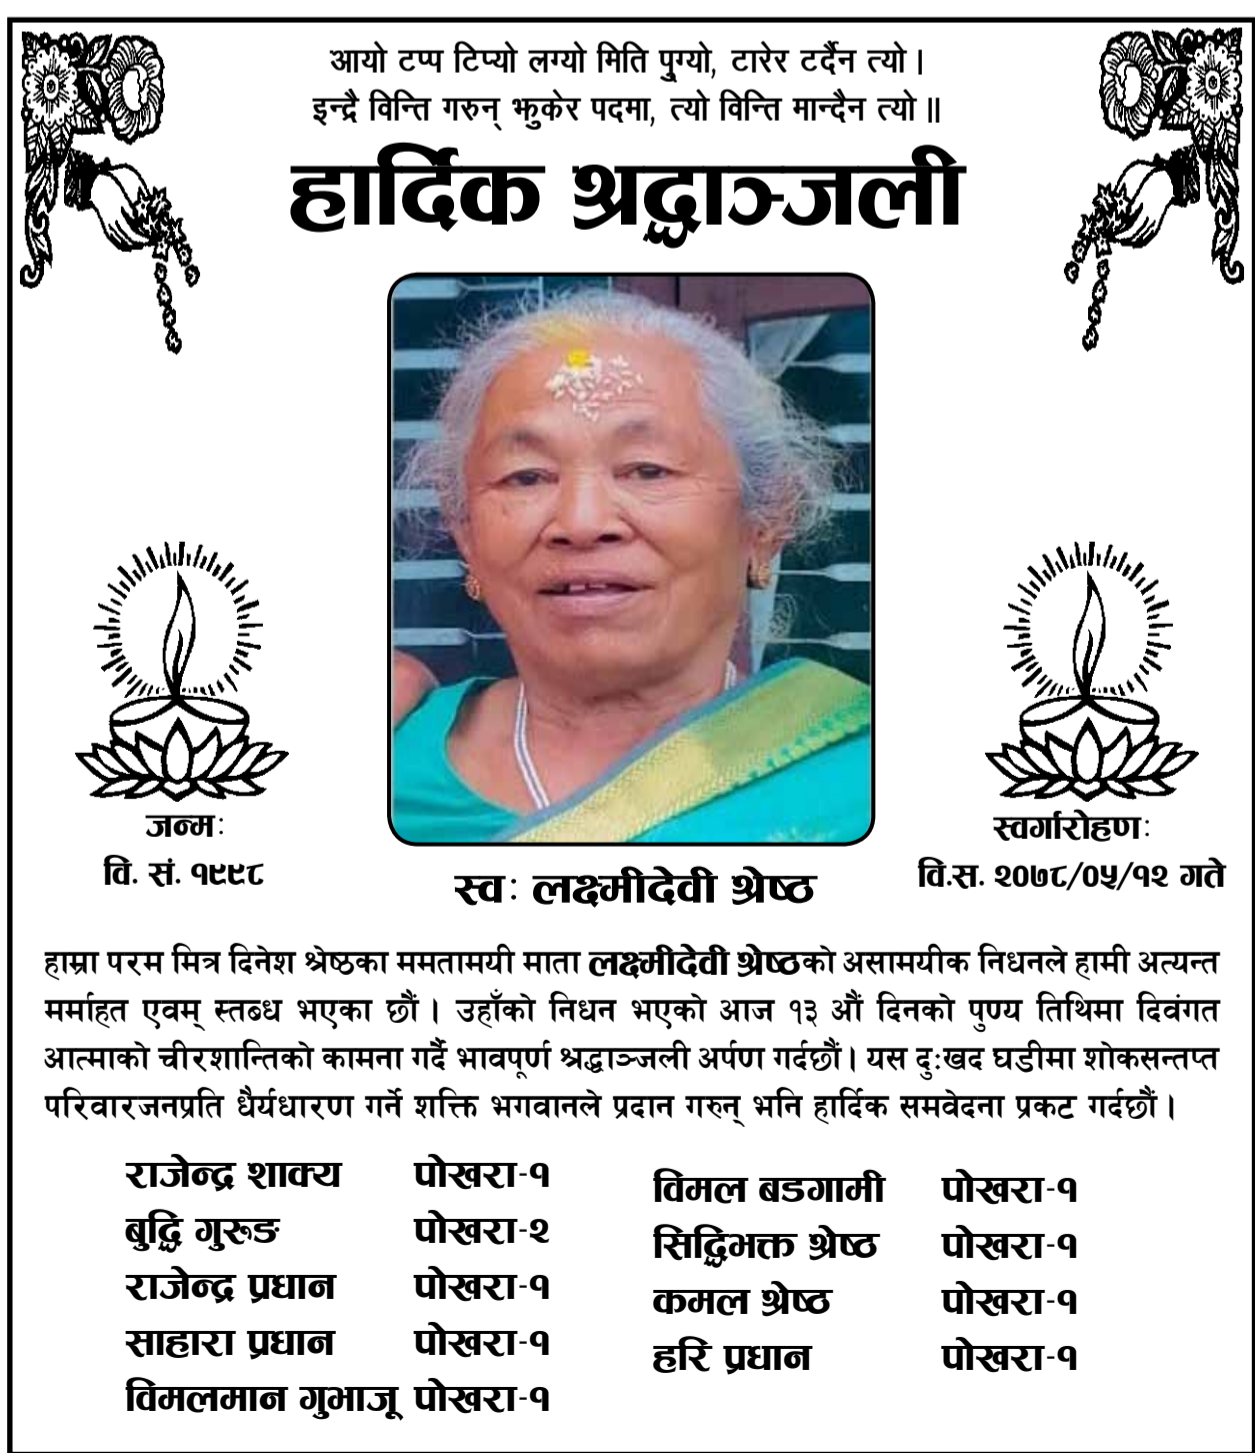 आयो टप्प टिप्यो लग्यो मिति पुग्यो, टारेर टर्दैन त्यो ।
इन्द्रै विन्ति गरुन् झुकेर पदमा, त्यो विन्ति मान्दैन त्यो ॥
हार्दिक श्रद्धाञ्जली
जन्म:
वि. सं. १९९८
स्वर्गारोहण:
वि.स. २०७८/०५/१२ गते
स्व: लक्ष्मीदेवी श्रेष्ठ
हाम्रा परम मित्र दिनेश श्रेष्ठका ममतामयी माता लक्ष्मीदेवी श्रेष्ठको असामयीक निधनले हामी अत्यन्त
मर्माहत एवम् स्तब्ध भएका छौं । उहाँको निधन भएको आज १३ औं दिनको पुण्य तिथिमा दिवंगत
आत्माको चीरशान्तिको कामना गर्दै भावपूर्ण श्रद्धाञ्जली अर्पण गर्दछौं । यस दु:खद घडीमा शोकसन्तप्त
परिवारजनप्रति धैर्यधारण गर्ने शक्ति भगवानले प्रदान गरुन् भनि हार्दिक समवेदना प्रकट गर्दछौं ।
राजेन्द्र शाक्य पोखरा-१
बुद्धि गुरुङ पोखरा-२
राजेन्द्र प्रधान पोखरा-१
साहारा प्रधान पोखरा-१
विमलमान गुभाजू पोखरा-१
विमल बडगामी पोखरा-१
सिद्धिभक्त श्रेष्ठ पोखरा-१
कमल श्रेष्ठ पोखरा-१
हरि प्रधान पोखरा-१